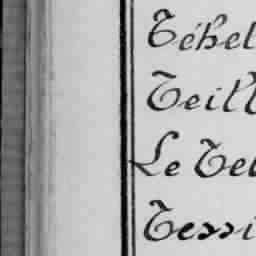 Téhel
Teill
Le Tel
Tessi